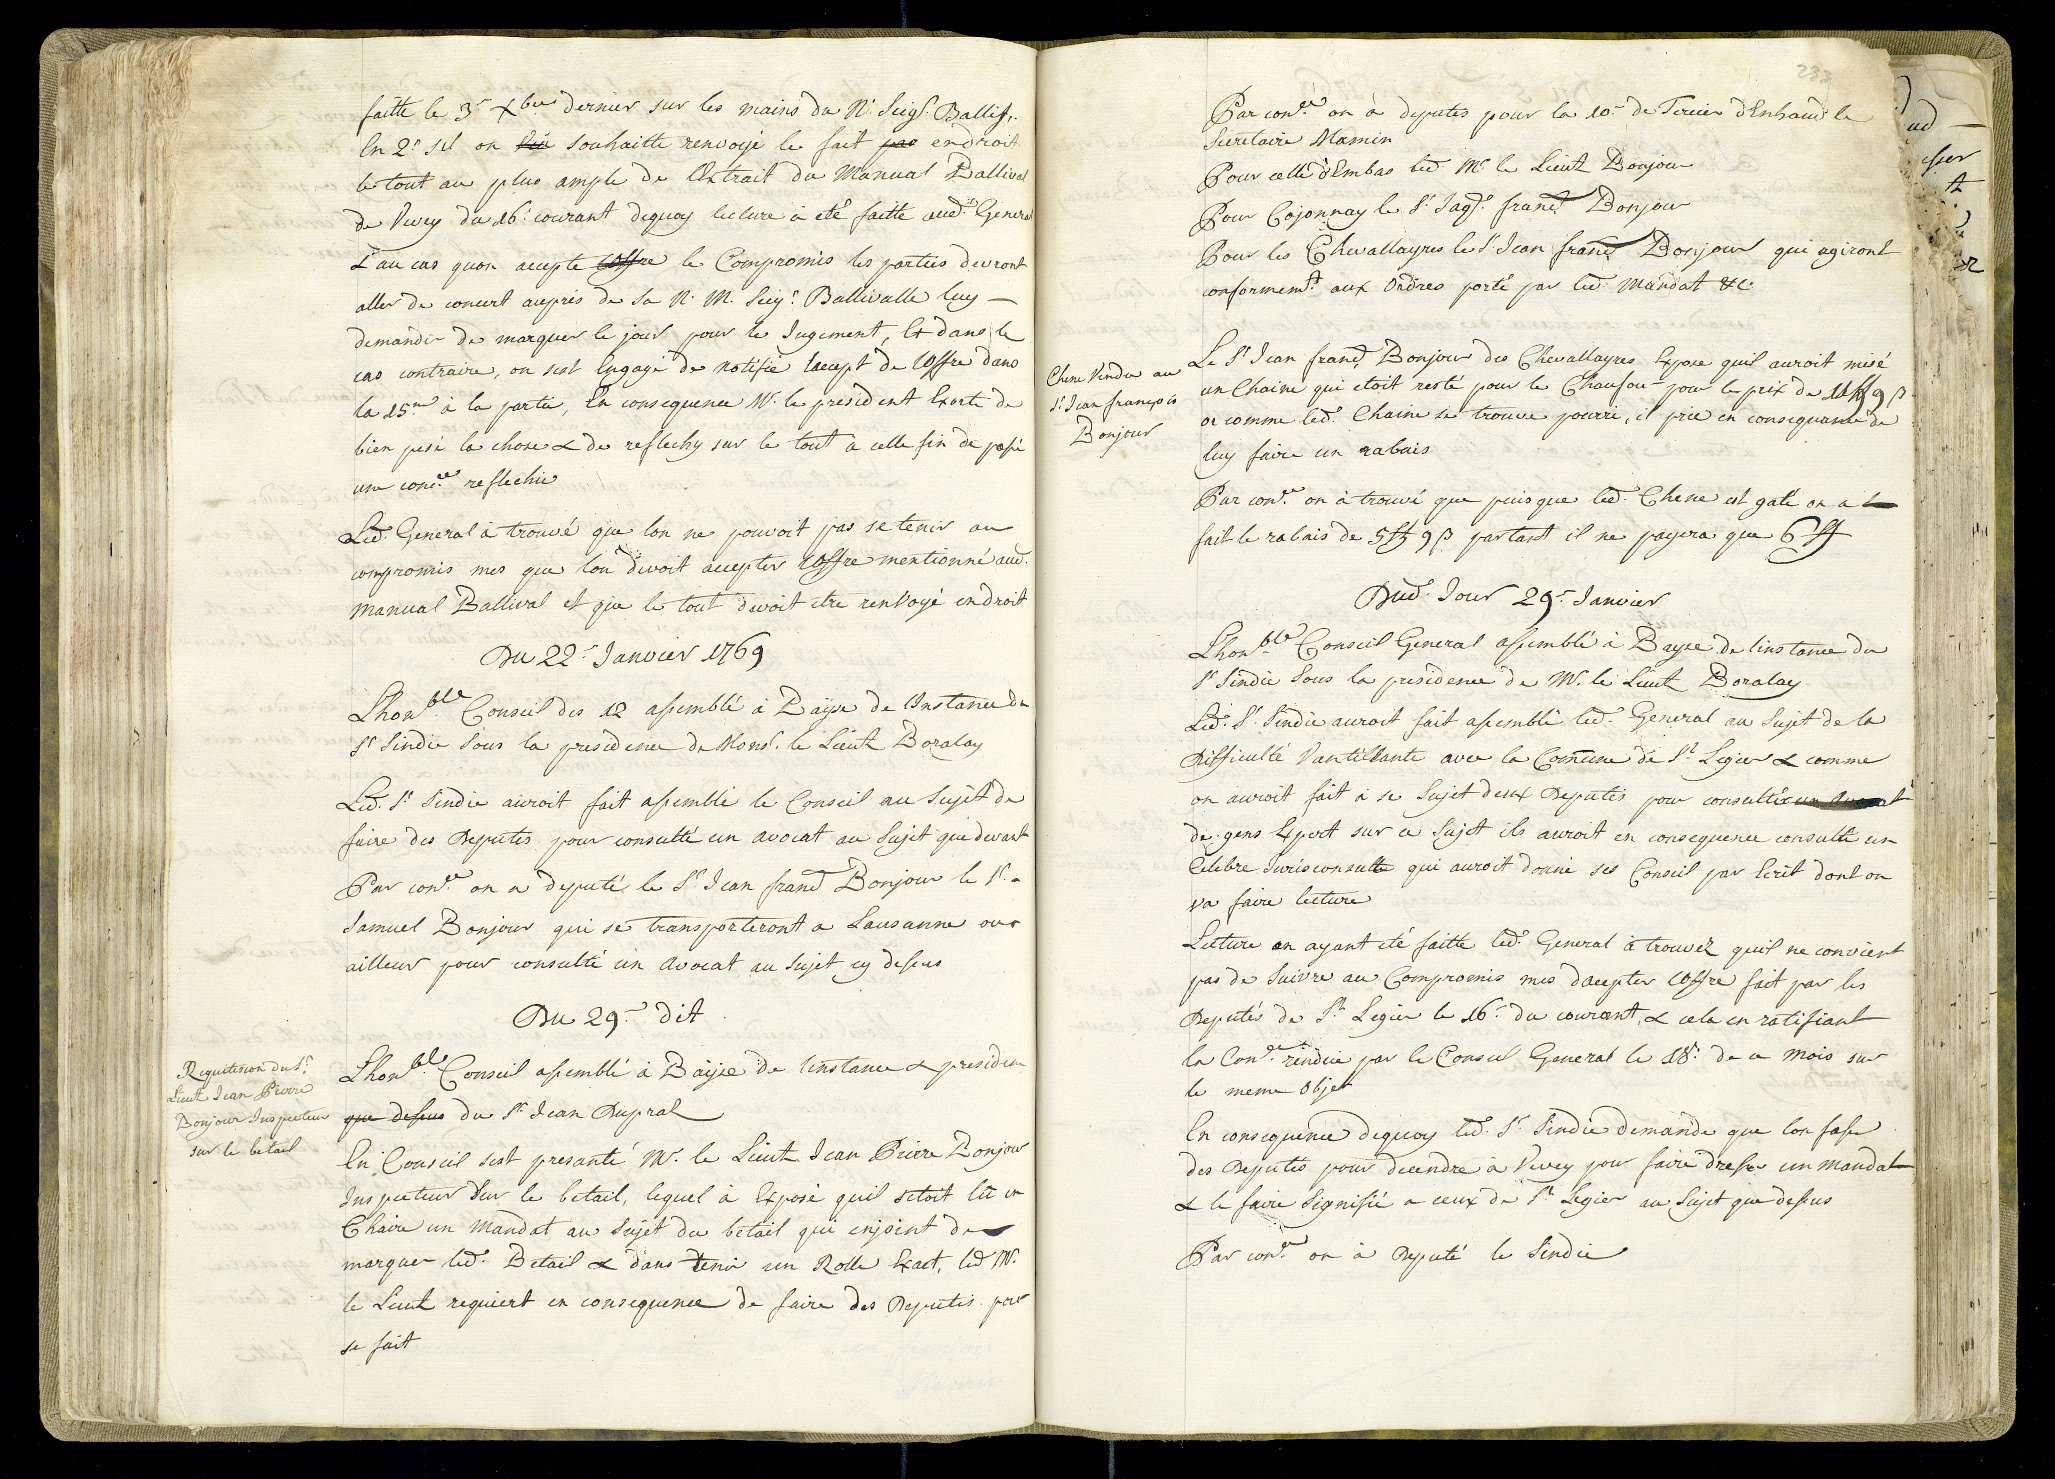 faitte le 3.e Xbre dernier sur les mains du N. Seigr. Ballif,
En 2.e sil on souhaitte renvoyé le fait pas en droit
le tout au plus ample de lExtrait du Manual Ballival
de Vevey du 16.e courant dequoy lecture à eté faitte aud.t General
& au cas quon accepte loffre le Compromis les parties devront
aller de concert auprés de sa N. M. Seigr. Ballivalle luy
demander de marquer le jour pour le Jugement, Et dans le
cas contraire, on sest Engagé de notifié laccept de lOffre dans
la 15.ne à la partie, En consequence Mr. le president Exorte de
bien pesé la chose & de reflechy sur le tout à celle fin de posé
une con.ce reflechie
Led. General à trouvé que lon ne pouvoit pas se tenir au
compromis mes que lon devoit accepter lOffre mentionné aud.
Manual Ballival et que le tout devoit etre renvoyé en droit
Du 22.e Janvier 1769
Lhon.ble Conseil des 12 assemblé à Baÿse de lInstance du
Sr. Sindic Sous la presidence de Monsr. le Lieut Boralay
Led. Sr. Sindic auroit fait assemblé le Conseil au Sujet de
faire des Deputés pour consulté un avocat au Sujet que devant
Par con.ce on a deputé le Sr. Jean franc Bonjour le Sr.
Samuel Bonjour qui se transporteront a Lausanne ou
ailleur pour consulté un Avocat au Sujet cy dessus
Du 29.e dit
Requitision du Sr.
Lieut Jean Pierre
Bonjour Inspecteur
sur le betail
Lhon.ble Conseil assemblé à Baÿse de linstance & presidence
que dessus du Sr. Jean Dupral
En Conseil sest presanté Mr. le Lieut Jean Pierre Bonjour
Inspecteur Sur le betail, lequel à Exposé quil setoit lû en
Chaire un Mandat au Sujet du betail qui enjoint de
marquer led. Betail & dans tenir un Rolle Exact, led Mr.
le Lieut requiert en consequence de faire des Deputés pour
se fait
233
Par con.ce on à deputés pour la 10.e de Tercier dEnhaud le
Secretaire Mamin
Pour cellé dEmbas led. Mr. le Lieut Bonjour
Pour Cojonnay le Sr. Jaqs. franc Bonjour
Pour les Chevallayres le Sr. Jean franc Bonjour qui agiront
conformemt. aux Ordres porté par led. Mandat &c.
Chene Vendu au
Sr. Jean françois
Bonjour
Le Sr. Jean franc Bonjour des Chevallayres Expose quil auroit misé
un Chaine qui etoit resté pour le Chaufour pour le prix de 11 ff 9 ß
or comme led. Chaine se trouve pourri, il prie en consequance de
luy faire un rabais
Par con.ce on à trouvé que puisque led. Chene est gaté on a
fait le rabais de 5 ff 9 ß partant il ne payera que 6 ff
Dud. Jour 29.e Janvier
Lhon.ble Conseil General assemblé à Bayse de linstance du
Sr. Sindic Sous la presidence de Mr. le Lieut Boralay
Led. Sr. Sindic auroit fait assemblé led. General au Sujet de la
Difficulté Vantillante avec la Comune de St. Legier & comme
on auroit fait à se Sujet deux Deputés pour consulté un Avocat
de gens Expert sur ce Sujet ils auroit en consequence consulté un
Celebre Jurisconsulte qui auroit donné ses Conseil par Ecrit dont on
va faire lecture
Lecture en ayant eté faitte led. General à trouvez quil ne convient
pas de Suivre au Compromis mes daccepter lOffre fait par les
Deputés de St. Legier le 16.e du courant, & cela en ratifiant
la Con.ce rendue par le Conseil General le 18.e de ce Mois sur
le meme Objet
En consequence dequoy led. Sr. Sindic demande que lon fasse
des Deputés pour decendre à Vevey pour faire dresser un mandat
& le faire Signifié a ceux de St. Legier au Sujet que dessus
Par con.ce on à Deputé le Sindic